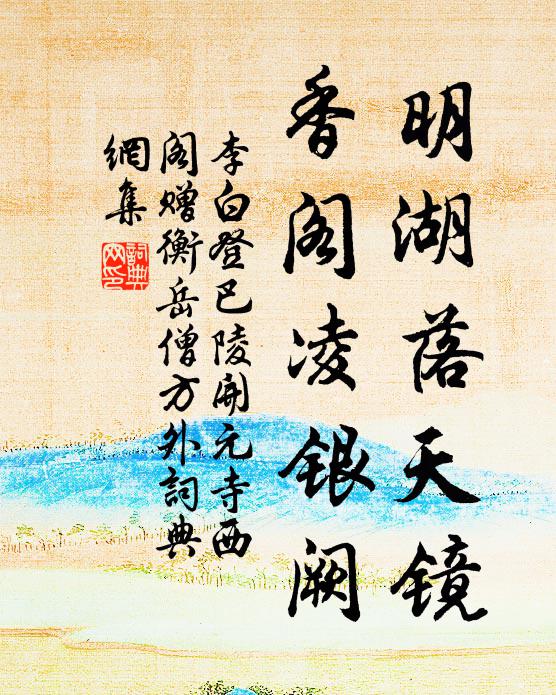 明湖落天镜
香阁凌银阙
李白登巴陵開元寺西
阁赠衡岳僧方外詞典
網集
詞典
网印